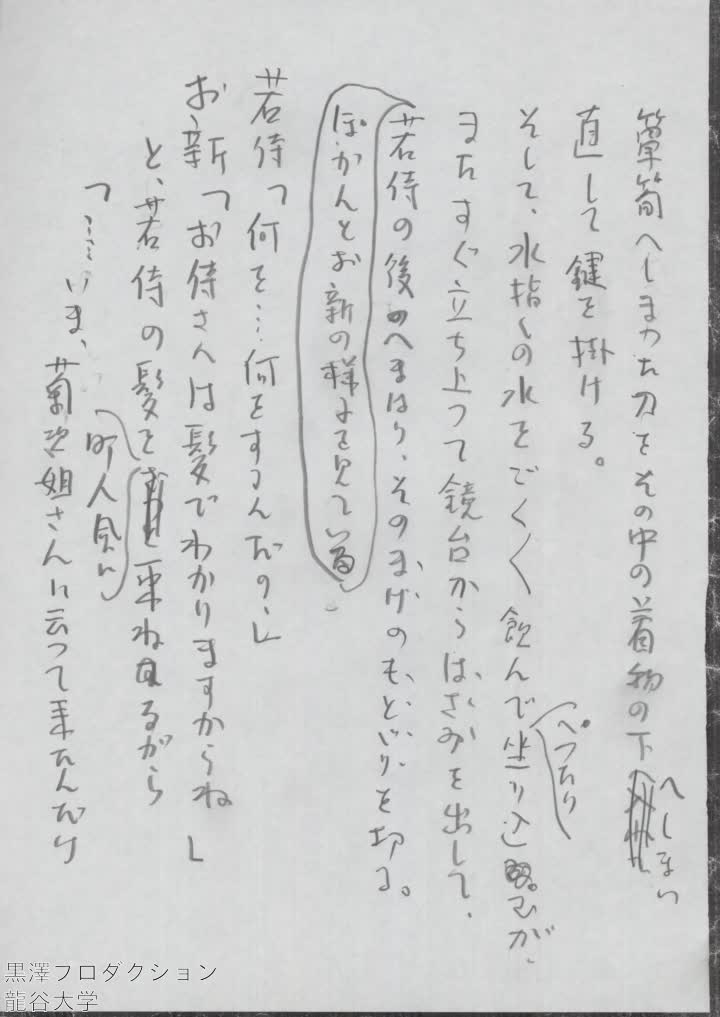 箪笥へしまった刀をその中の着物の下へしまい
直して鍵を掛ける。
そして、水指しの水をごくごく飲んでぺったり坐り込むが、
またすぐ立ち上って鏡台からはさみを出して、
若侍の後へまはり、そのまげのもとどりを切る。
ぽかんとお新の様子を見ている
若侍「何を…何をするんだの」
お新「お侍さんは髪でわかりますからね」
と、若侍の髪を町人風に束ねながら
「……いま、菊次姐さんに云って来たんだけ
黒澤プロダクション
龍谷大学